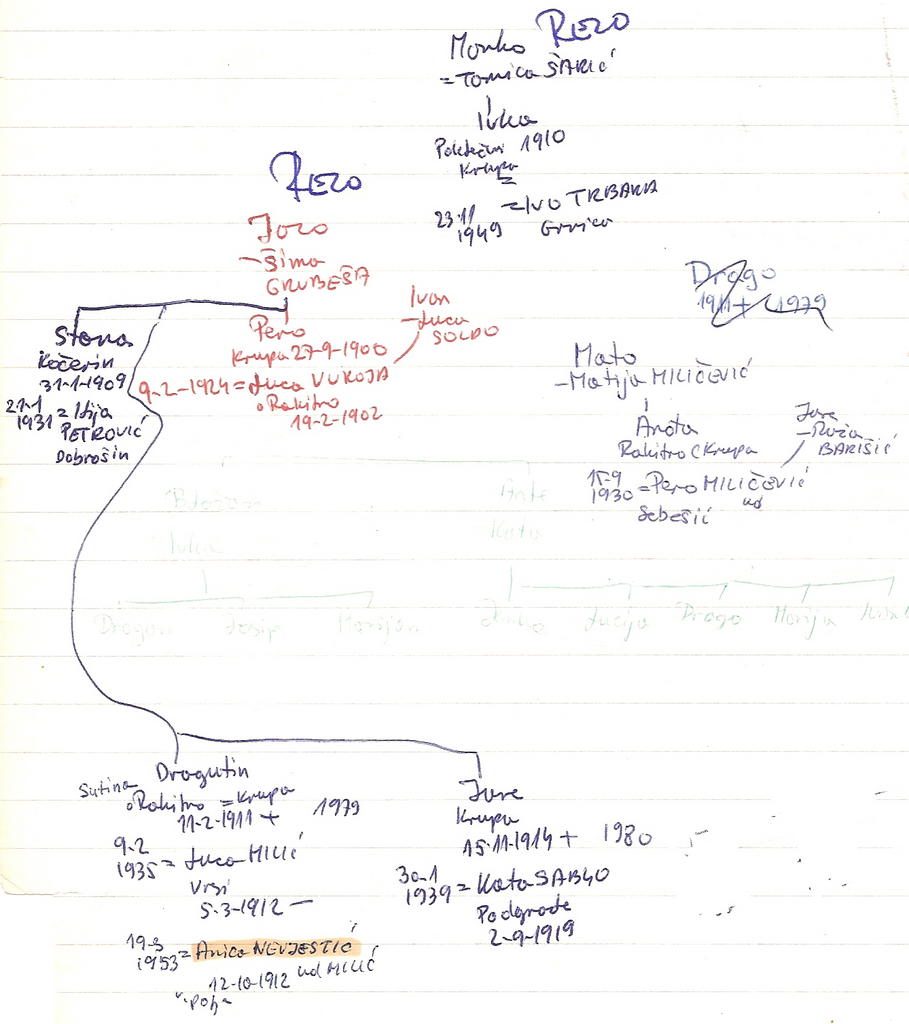 Monko REZO
= Tomica ŠARIĆ
Ivka
1910
Krupa
23.11
1949
= IVO TRBARA
REZO
Jozo
– Šima
GRUBEŠA
Stana
Kočerin
31-1-1909
21-1
1931 = Ilija
PETROVIĆ
Dobrošin
Pero
Krupa 27-9-1900
9-2-1924 = Luca VUKOJA
o Rakitno
19-2-1902
Ivan
– Luca
SOLDO
Drago
1911 + 1979
Mato
– Matija MILIČEVIĆ
Aneta
Rakitno (Krupa
15-9
1930 = Pero MILIČEVIĆ
ud
Sebešić
Jure
– Ruža
BARIŠIĆ
Blažan
Ivka
Dragan Josip Marijan
Ante
Kata
Janko Lucija Drago Marija
Dragutin
Sutina
o Rakitno = Krupa
11-2-1911 + 1979
9-2
1935 = Luca MILIĆ
Vrsi
5-3-1912 –
19-3
1953 = Anica NEVJESTIĆ
12-10-1912 ud MILIĆ
Jure
Krupa
15-11-1914 + 1980
30-1
1939 = Kata SABLJO
Podgrađe
2-9-1919